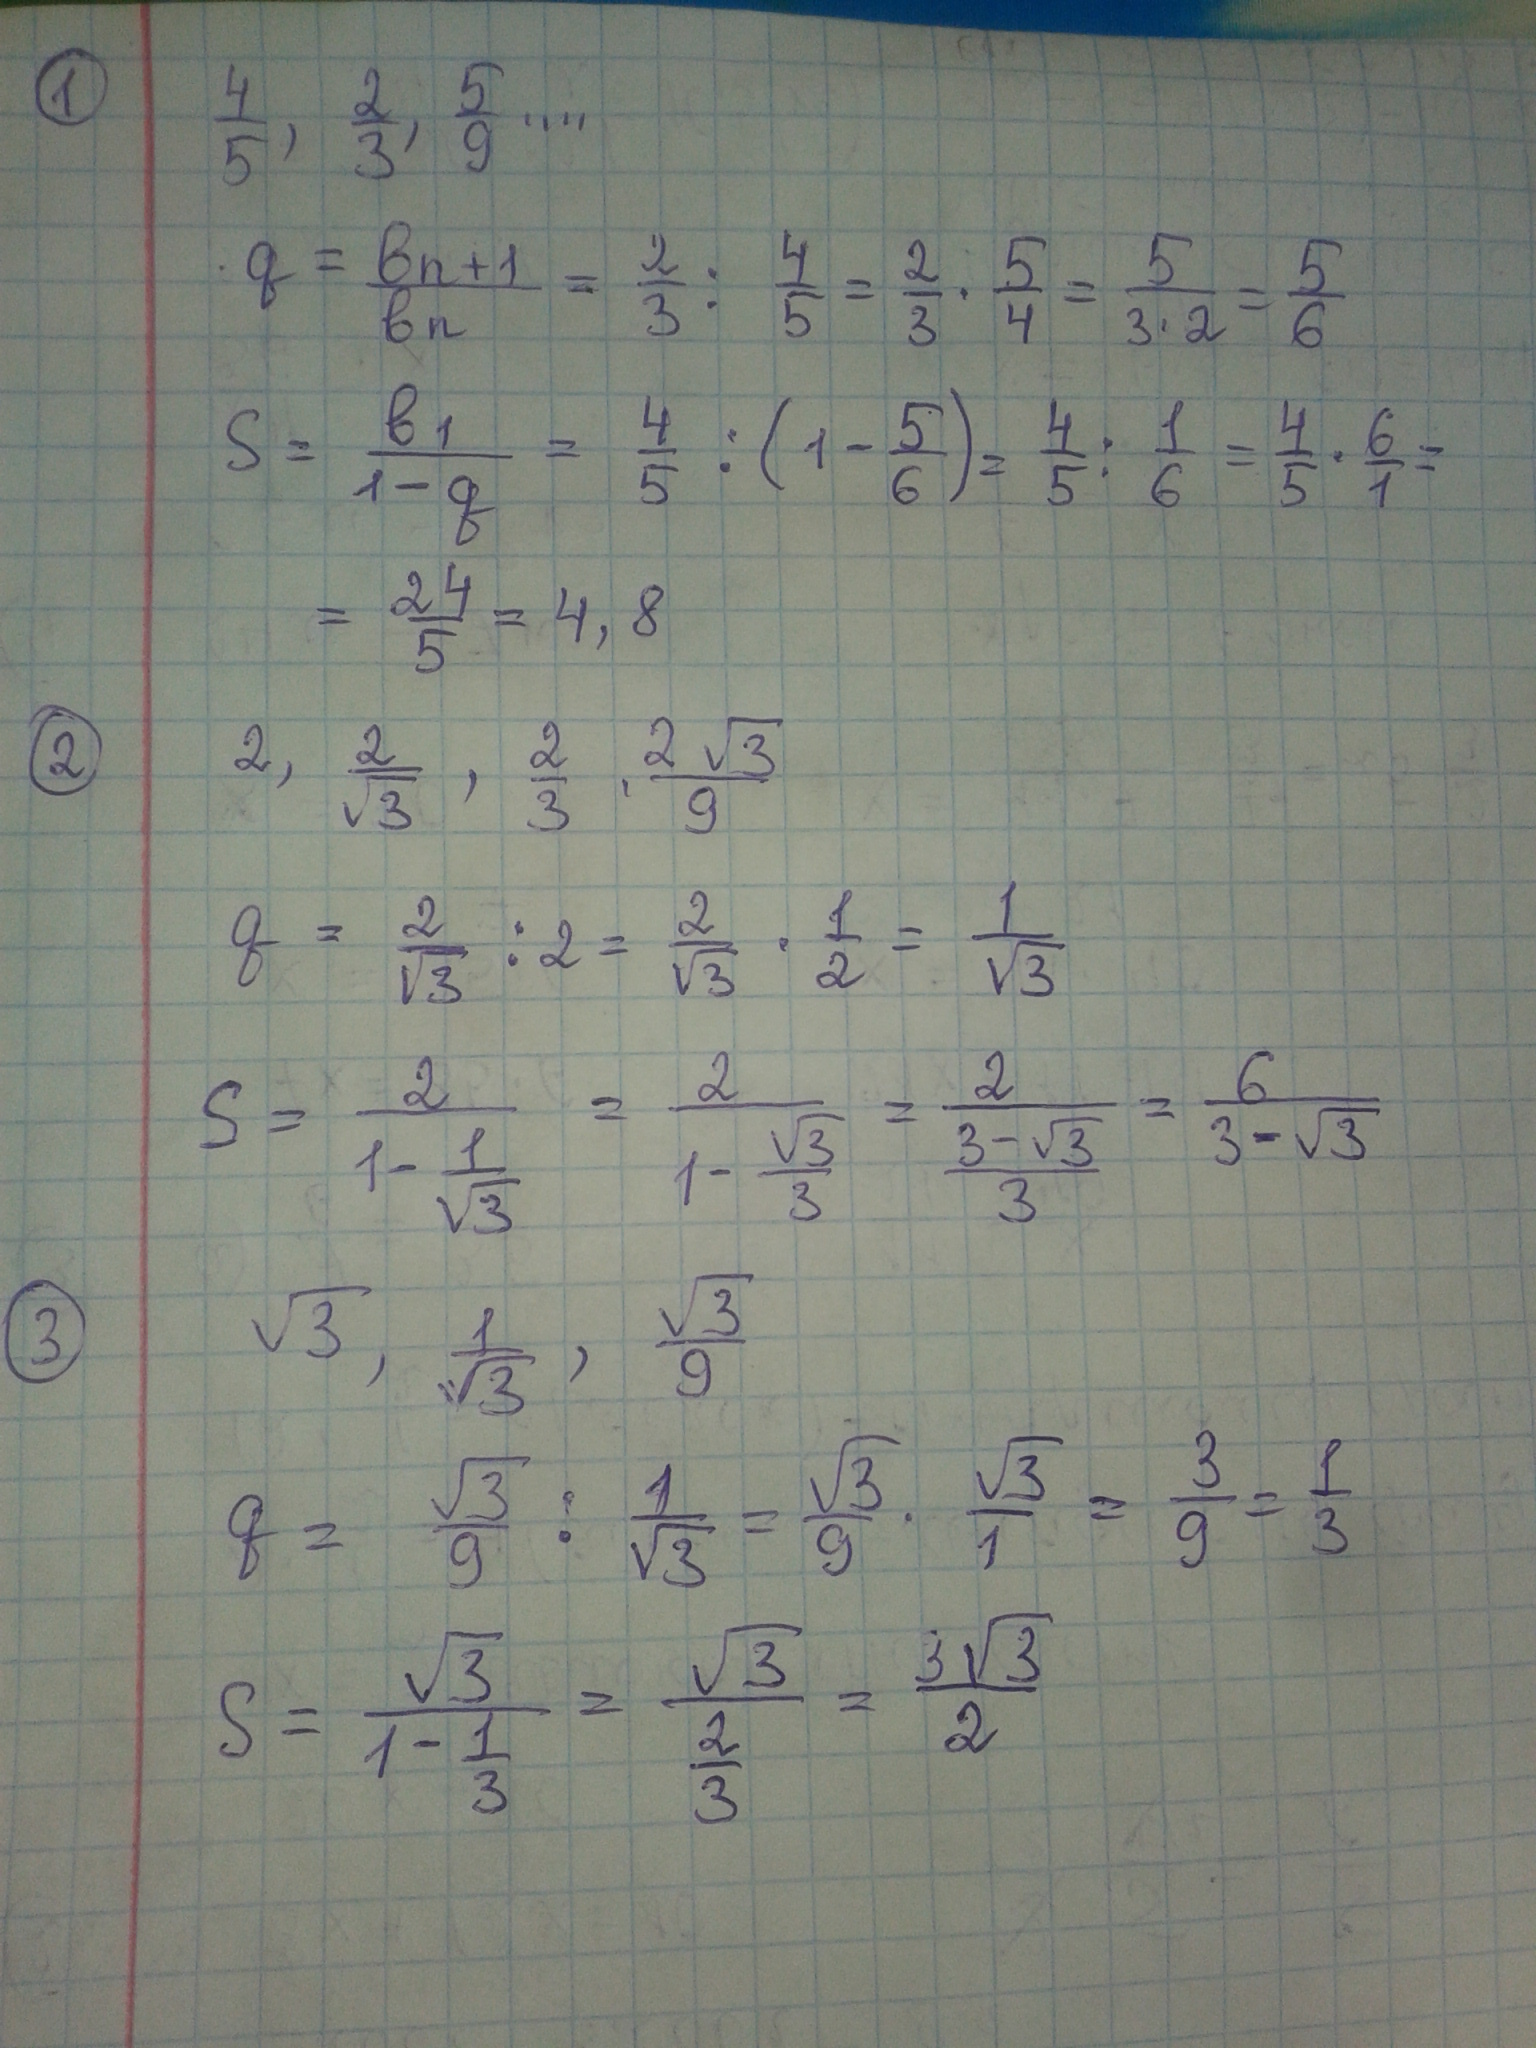 ① 4/5, 2/3, 5/9 ....
q = bn+1/bn = 2/3 : 4/5 = 2/3 · 5/4 = 5/(3·2) = 5/6
S = b1/(1-q) = 4/5 : (1 - 5/6) = 4/5 : 1/6 = 4/5 · 6/1 =
= 24/5 = 4,8
② 2, 2/√3, 2/3, 2√3/9
q = 2/√3 : 2 = 2/√3 · 1/2 = 1/√3
S = 2/(1 - 1/√3) = 2/(1 - √3/3) = 2/((3-√3)/3) = 6/(3-√3)
③ √3, 1/√3, √3/9
q = √3/9 : 1/√3 = √3/9 · √3/1 = 3/9 = 1/3
S = √3/(1 - 1/3) = √3/(2/3) = 3√3/2